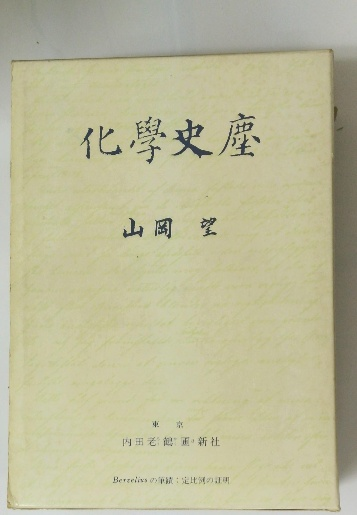 化學史塵
山岡 望
東京
内田老鶴圃新社
Berzelius の筆蹟：定比例の証明